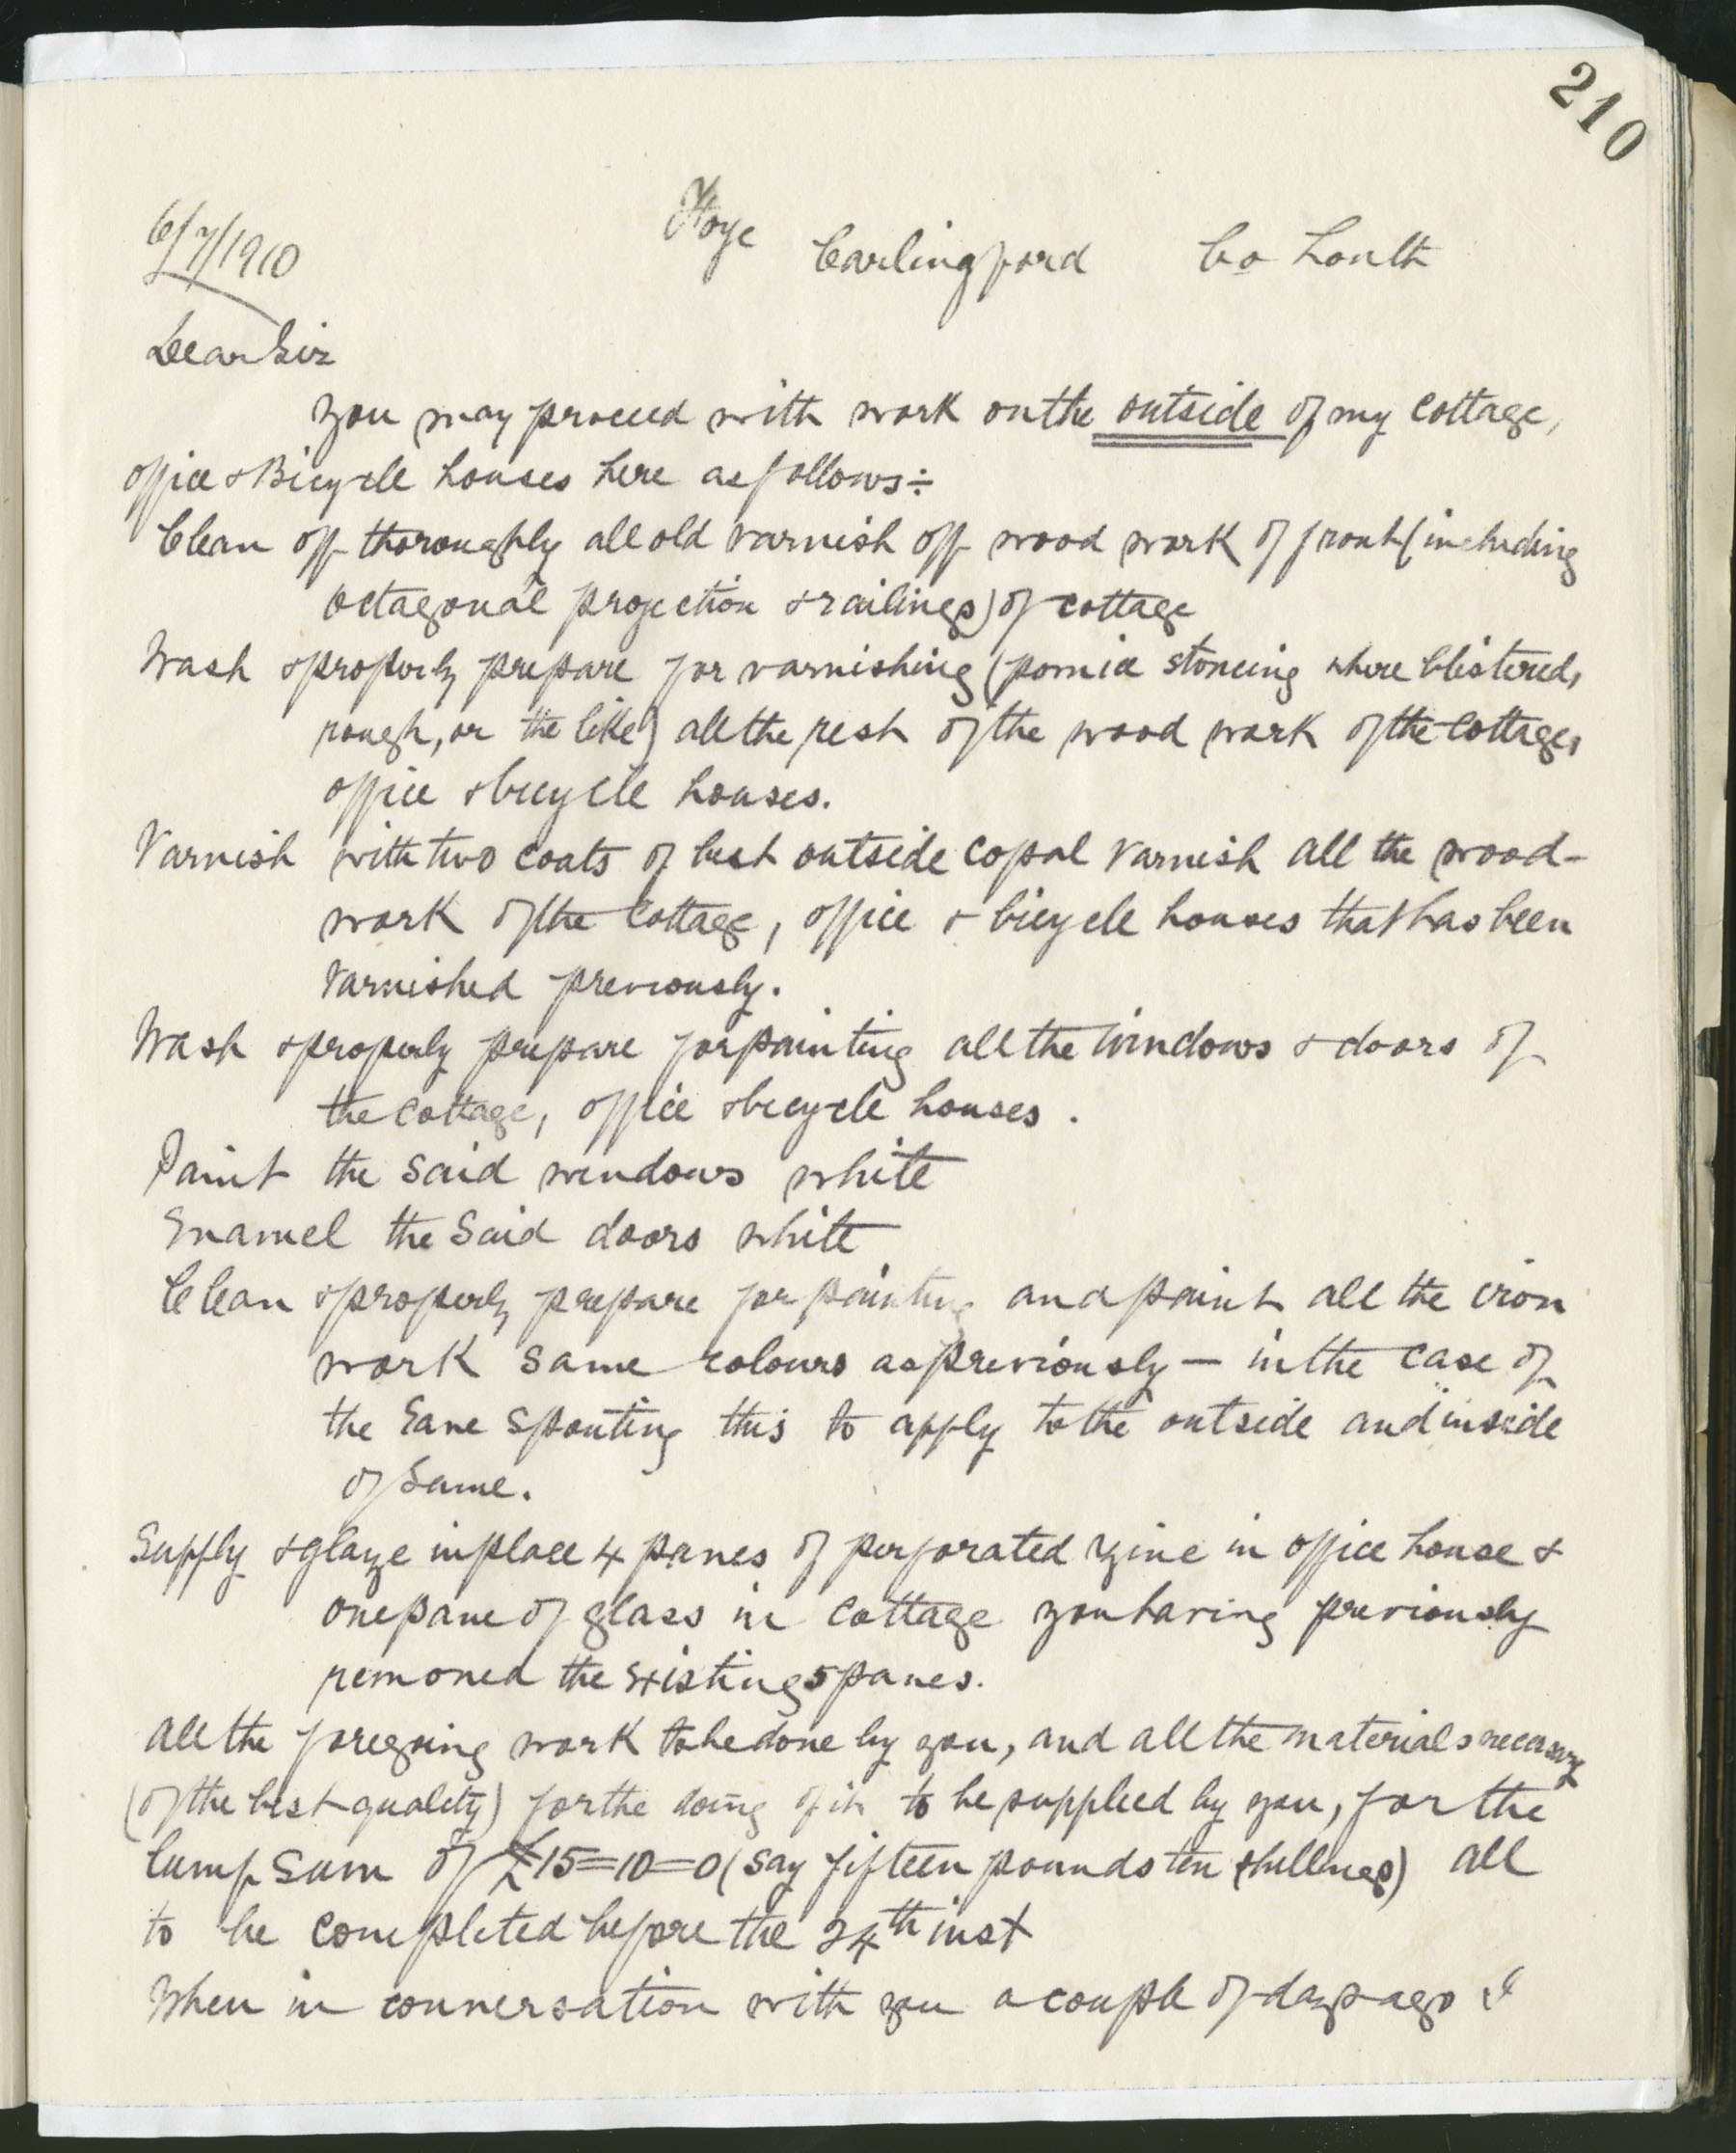 210
6/7/1910
Carlingford Co Louth
Dear Sir
You may proceed with work on the outside of my cottage,
office & Bicycle houses here as follows:-
Clean off thoroughly all old varnish off wood work of front (including
octagonal projection & railings) of cottage
Wash & properly prepare for varnishing (pomice stoneing where blistered,
rough, or the like) all the rest of the wood work of the cottage,
office & bicycle houses.
Varnish with two coats of best outside copal varnish all the wood-
work of the cottage, office & bicycle houses that has been
varnished previously.
Wash & properly prepare for painting all the windows & doors of
the cottage, office & bicycle houses.
Paint the said windows white
Enamel the said doors white
Clean & properly prepare for painting and paint all the iron
work same colours as previously — in the case of
the Eave Spouting this to apply to the outside and inside
of same.
Supply & glaze in place 4 panes of perforated zinc in office house &
one pane of glass in cottage you having previously
removed the existing 5 panes.
All the foregoing work to be done by you, and all the materials necessary
(of the best quality) for the doing of it to be supplied by you, for the
lump sum of £15=10=0 (say fifteen pounds ten shillings) all
to be completed before the 24th inst
When in conversation with you a couple of days ago I